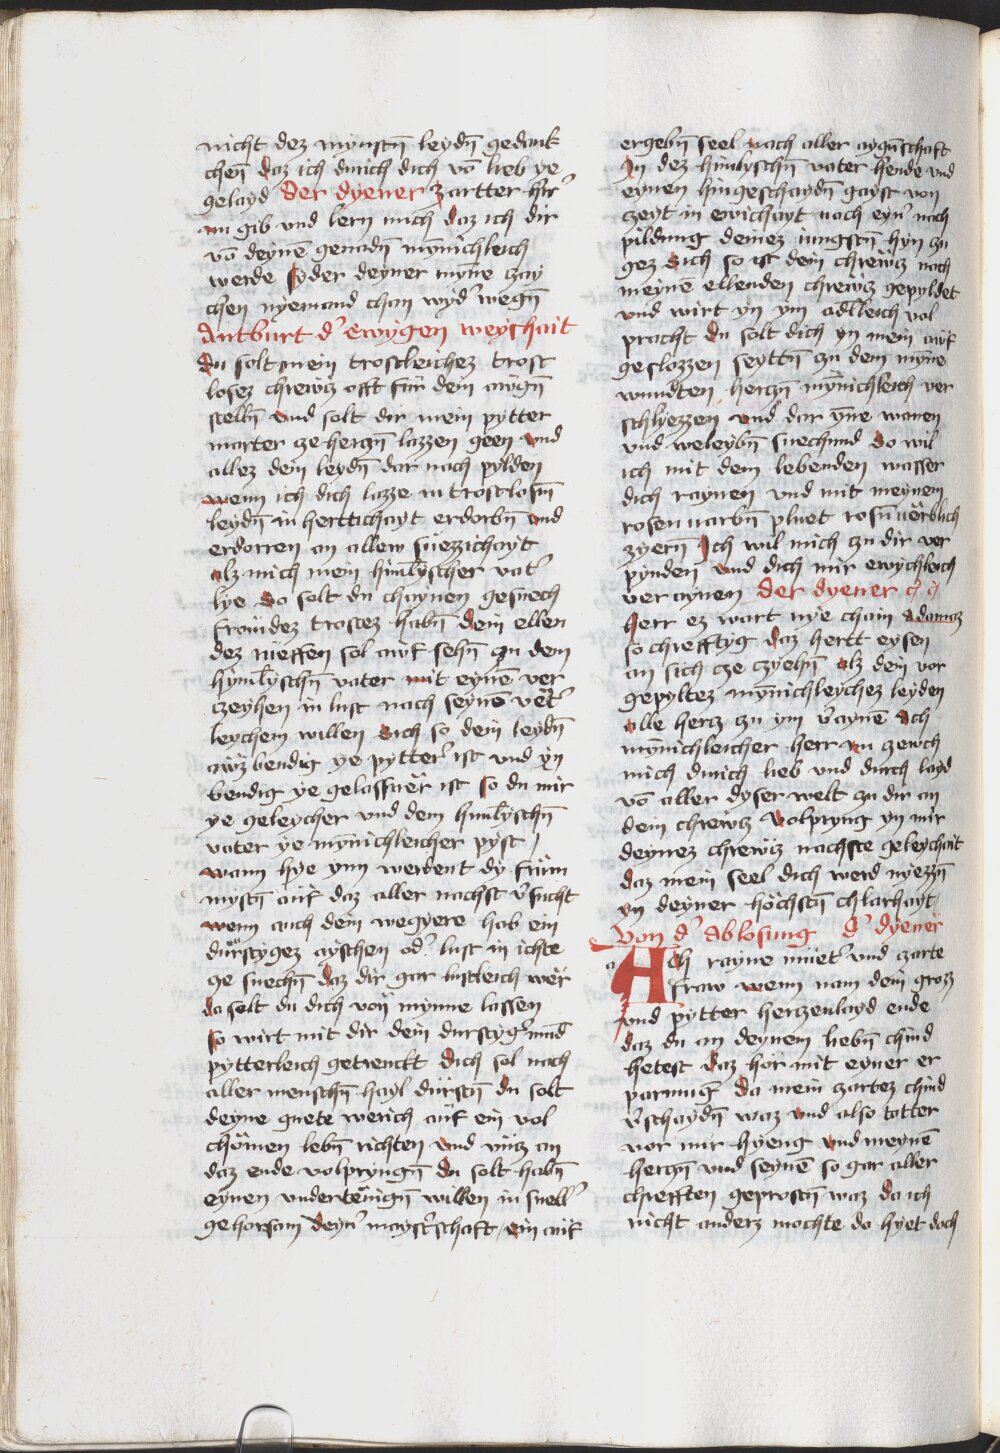 nicht dez mynstn̄ leydn̄ gedank
chen̄ daz ich durich dich vō lieb ye
gelayd Der dyener Zartter her̾
nu gib vnd lern mich daz ich dir
vō deynē genadn̄ mȳnichleich
werde Syder deyner myne czay
chen nyemand chan wyd̾ wegn̄
Antburt d̾ Ewygen weyshait
Du solt mein trostleichez trost
losez chrewcz offt fur dein awgn̄
stelln̄ vnd solt dir mein pytter
marter cze herczn̄ lazzen geen vnd
allez dein leydn̄ dar nach pylden
wenn ich dich lazze in trostlosm̄
leydn̄ in herttichayt erdorbn̄ vnd
erdorren an allew süezzichayt
alz mich mein himlÿscher vat̾
lye So solt du chaynen gesuech
frömdez trostez habn̄ dein ellen
dez rüeffen sol awf sehn̄ zu dem
hymlÿschn̄ vater mit eynē ver
czeyhen in lust nach seynē vët̾
leychem willen Sich so dein leydn̄
awzbendig ye pytter̾ ist vnd yn̄
bendig ye gelassner ist so du mir
ye geleycher vnd dem himlÿschn̄
vater ye mȳnichleicher pyst
wann hye ynn werdent dy frum
mystn̄ auf daz aller nachst v̾sucht
wenn auch dein wegyere hab ein
dürstygez ayschen od̾ lust in ichte
ze suechn̄ daz dir gar lustleich wer
da solt du dich von mynne lassen
So wirt mit dir dein durstyg̾ mūd
pytterleich getrenckt Dich sol nach
aller menschn̄ hayl dürstn̄ Du solt
deyne guete werich auf ein vol
chömen lebn̄ richten vnd vncz an
daz ende volpryngn̄ Du solt habn̄
eynen vndertënign̄ willen in snell̾
gehorsam deyn̾ mayst̾schaft ein auf
ergebn̄ seel nach aller aygn̄schaft
In dez himlyschn̄ vater hende vnd
eynen hingeschaydn̄ gayst von
czeyt in ewichayt nach eyn̾ nach
pildung deinez iungstn̄ hyn zu
gez Sich so ist dein chrewcz nach
meynē ellenden chrewcz gepyldet
vnd wirt yn ym adlleich vol
pracht Du solt dich yn mein auf
geslozzen seyttn̄ zu dem myne
wundten herczn̄ mȳnichleich ver
schliezzen vnd dar ȳne wonen
vnd weleybn̄ suechund So wil
ich mit dem lebenden wasser
dich raynen vnd mit meynem
rosen uarbn̄ pluet rosn̄uërblich
zyern̄ Ich wil mich zu dir ver
pynden vnd dich mir ewychleich
ver aynen Der dyener
Herr ez wart nye chain Adamaz
so chrefftyg daz hertt eysen
an sich cze czyehn̄ alz dein vor
gepyltez mȳnichleychez leyden
alle hercz zu ym v̾aynē Ach
mȳnichleicher herr nu zewch
mich durich lieb vnd durch layd
vō aller dyser welt zu dir an
dein chrewcz volpryng yn mir
deynez chrewcz nachste geleychait
daz mein seel dich werd nyezzn̄
yn deyner höchstn̄ chlarhayt
Von d̾ Ablosung D̾ dyener
a Ach rayne müet̾ vnd czarte
fraw wenn nam dein grozz
vnd pytter herczenlayd ende
daz du an deynem liebn̄ chind
hetest Daz hör mit eyner er
parmug̾ Da mein czartez chind
v̾schaydn̄ waz vnd also totter
vor mir hyeng vnd meynē
herczn̄ vnd seynē so gar aller
chrefften geprostn̄ waz da ich
nicht anderz mochte do hyet doch